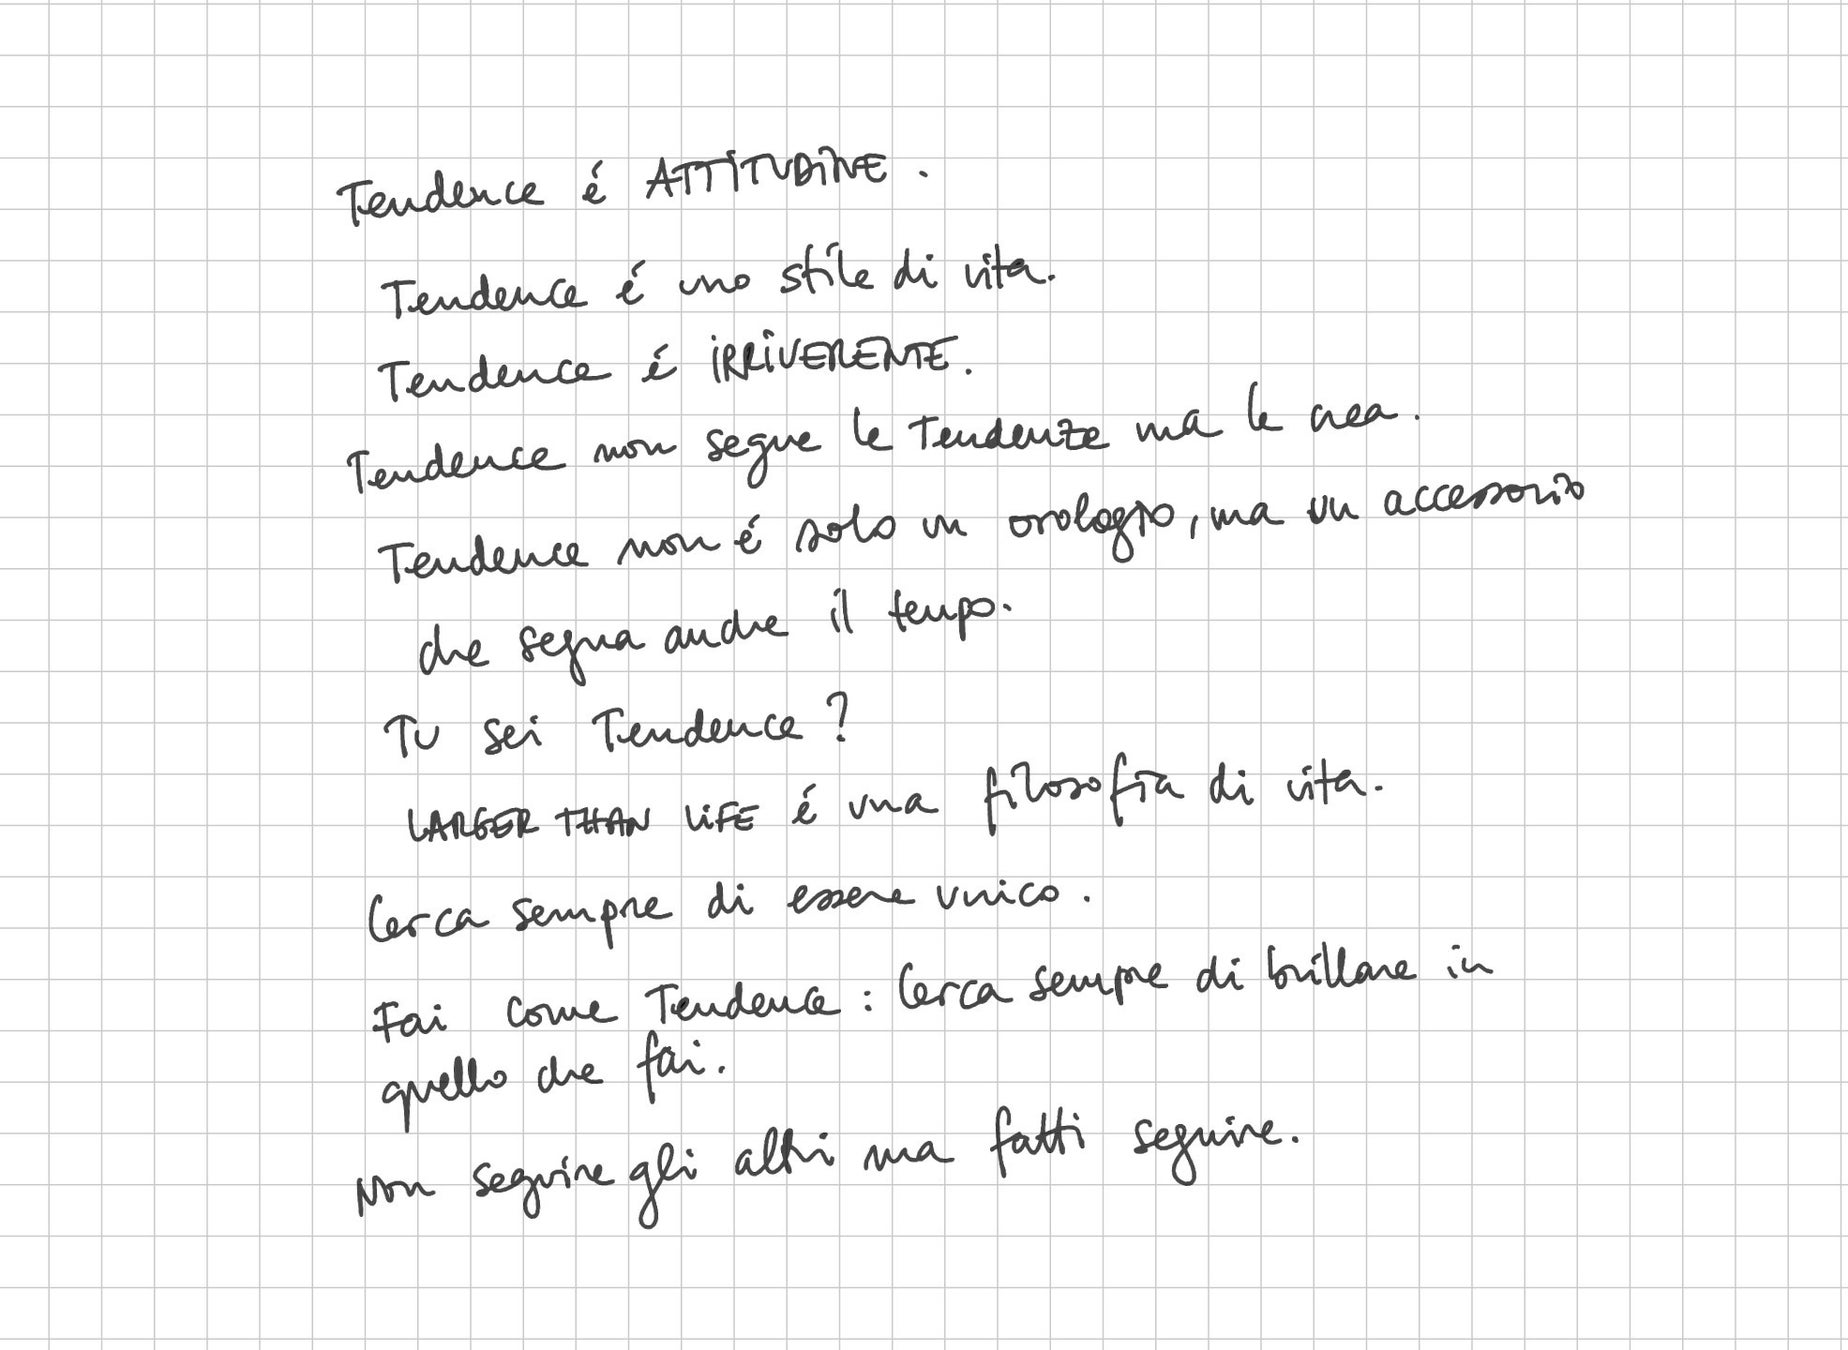 Tendence é ATTITUDINE.
Tendence é uno stile di vita.
Tendence é IRRIVERENTE.
Tendence non segue le Tendenze ma le crea.
Tendence non é solo un orologio, ma un accessorio
che segna anche il tempo.
Tu sei Tendence?
LARGER THAN LIFE é una filosofia di vita.
Cerca sempre di essere unico.
Fai come Tendence: Cerca sempre di brillare in
quello che fai.
Non seguire gli altri ma fatti seguire.